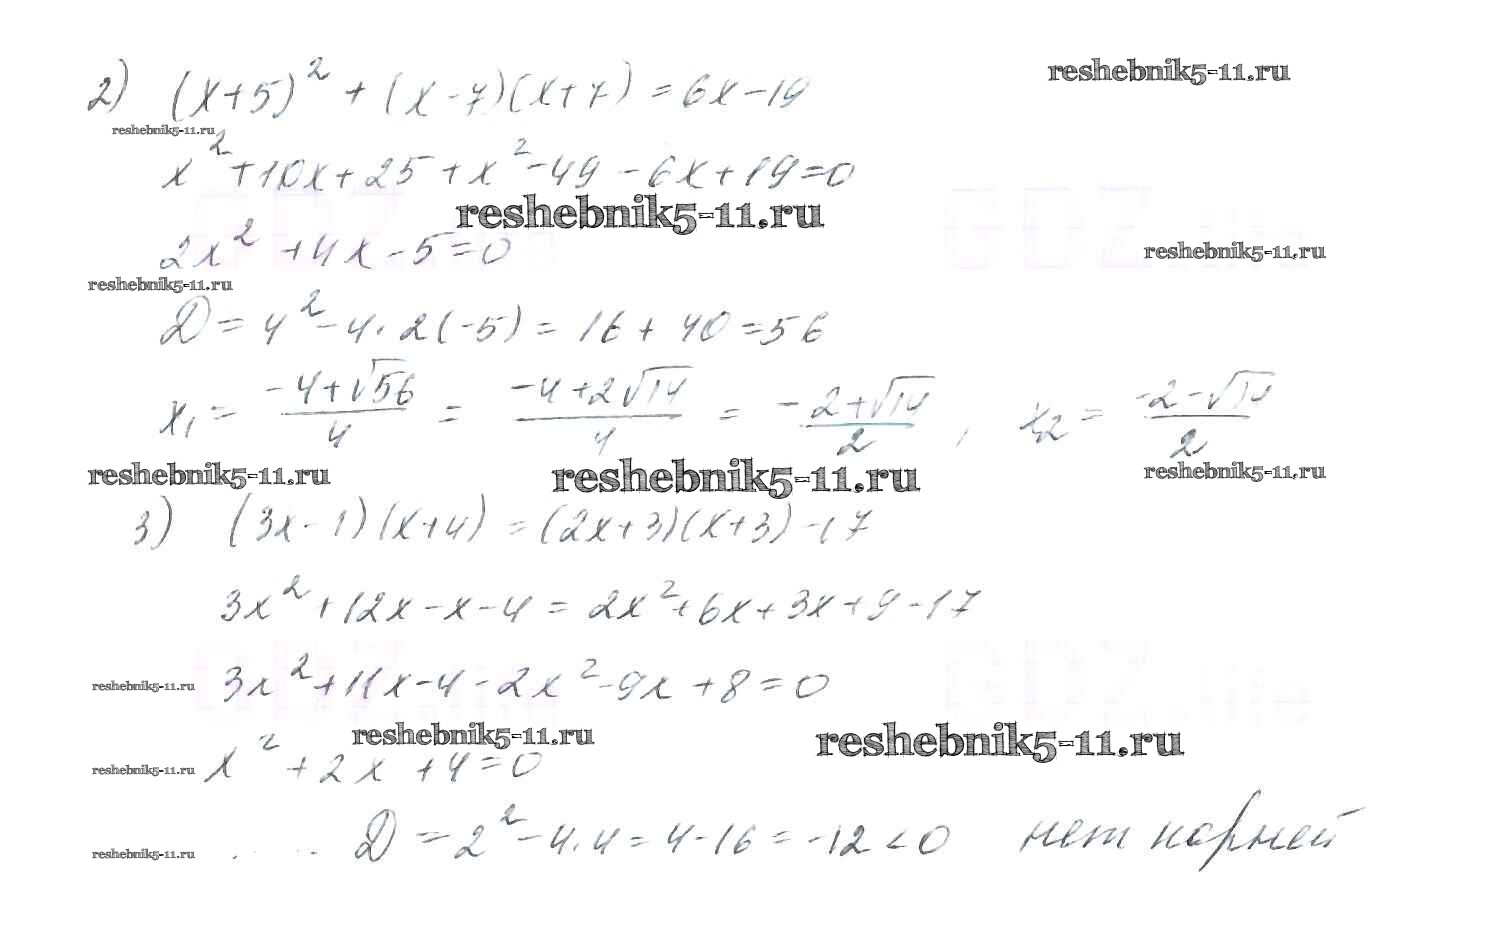 2) (x+5)² + (x-7)(x+7) = 6x-19
reshebnik5-11.ru
reshebnik5-11.ru
x²+10x+25+x²-49-6x+19=0
reshebnik5-11.ru
2x²+4x-5=0
reshebnik5-11.ru
reshebnik5-11.ru
D = 4²-4·2(-5) = 16+40=56
x₁ = (-4+√56)/4 = (-4+2√14)/4 = -(2+√14)/2, x₂ = (-2-√14)/2
reshebnik5-11.ru
reshebnik5-11.ru
reshebnik5-11.ru
3) (3x-1)(x+4) = (2x+3)(x+3)-17
3x²+12x-x-4 = 2x²+6x+3x+9-17
GDZ.life
GDZ.life
reshebnik5-11.ru
3x²+11x-4-2x²-9x+8=0
reshebnik5-11.ru
reshebnik5-11.ru
reshebnik5-11.ru
x²+2x+4=0
reshebnik5-11.ru
D = 2²-4·4 = 4-16 = -12<0 нет корней